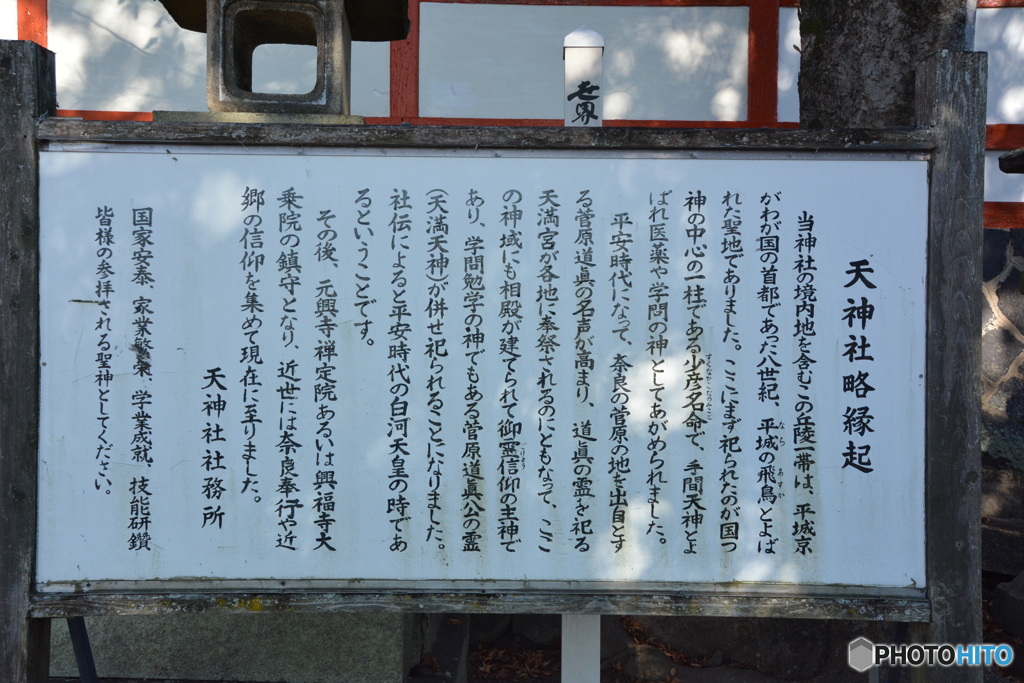 天神社略縁起
当神社の境内地を含むこの丘陵一帯は、平城京
がわが国の首都であった八世紀、平城の飛鳥とよば
なら
あすか
れた聖地でありました。ここにまず祀られたのが国つ
神の中心の一柱である少彦名命で、手間天神とよ
すくなひこなのみこと
ばれ医薬や学問の神としてあがめられました。
平安時代になって、奈良の菅原の地を出自とす
る菅原道眞の名声が高まり、道眞の霊を祀る
天満宮が各地に奉祭されるのにともなって、ここ
の神域にも相殿が建てられて御霊信仰の主神で
ごりょう
あり、学問勉学の神でもある菅原道眞公の霊
(天満天神)が併せ祀られることになりました。
社伝によると平安時代の白河天皇の時であ
るということです。
その後、元興寺禅定院あるいは興福寺大
乗院の鎮守となり、近世には奈良奉行や近
郷の信仰を集めて現在に至りました。
天神社社務所
国家安泰、家業繁榮、学業成就、技能研鑽
皆様の参拝される聖神としてください。
世界
PHOTOHITO